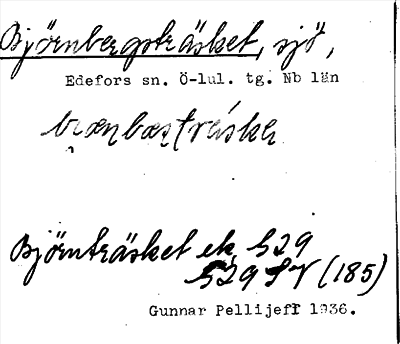 Björnbergsträsket, sjö,
Edefors sn. Ö-lul. tg. Nb län
Björnträsket ek. 529
529 SV (185)
Gunnar Pellijeff 1936.